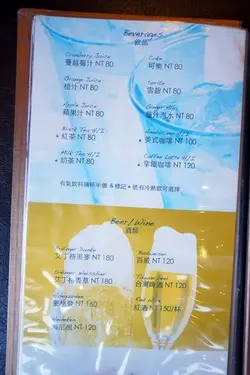 Beverages
飲品
Cranberry Juice
蔓越莓汁 NT 80
Coke
可樂 NT 80
Orange Juice
橙汁 NT 80
Sprite
雪碧 NT 80
Apple Juice
蘋果汁 NT 80
Ginger Ale
薑汁汽水 NT 80
* Black Tea H/I
* 紅茶 NT 80
* 美式咖啡 NT 100
* Milk Tea H/I
* 奶茶 NT 80
Coffee Latte H/I
* 拿鐵咖啡 NT 120
有氣飲料續杯半價 & 標記 * 號有冷熱飲可選擇
Beer/Wine
酒類
艾丁格黑麥 NT 180
Budweiser
百威 NT 120
艾丁格 NT 180
Taiwan Beer
台灣啤酒 NT 120
Hoegaarden
NT 160
Red Wine
紅酒 NT 150/杯
Heineken
海尼根 NT 120